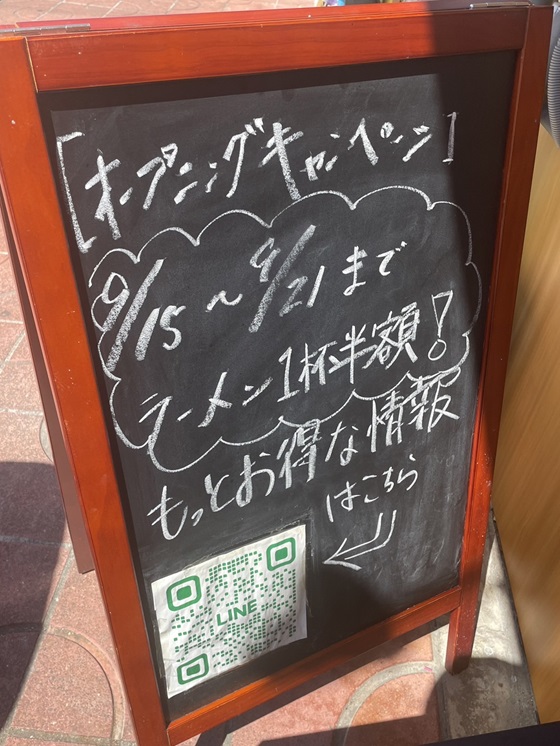 [オープニングキャンペーン]
9/15～9/21まで
ラーメン1杯半額!
もっとお得な情報
はこちら
LINE